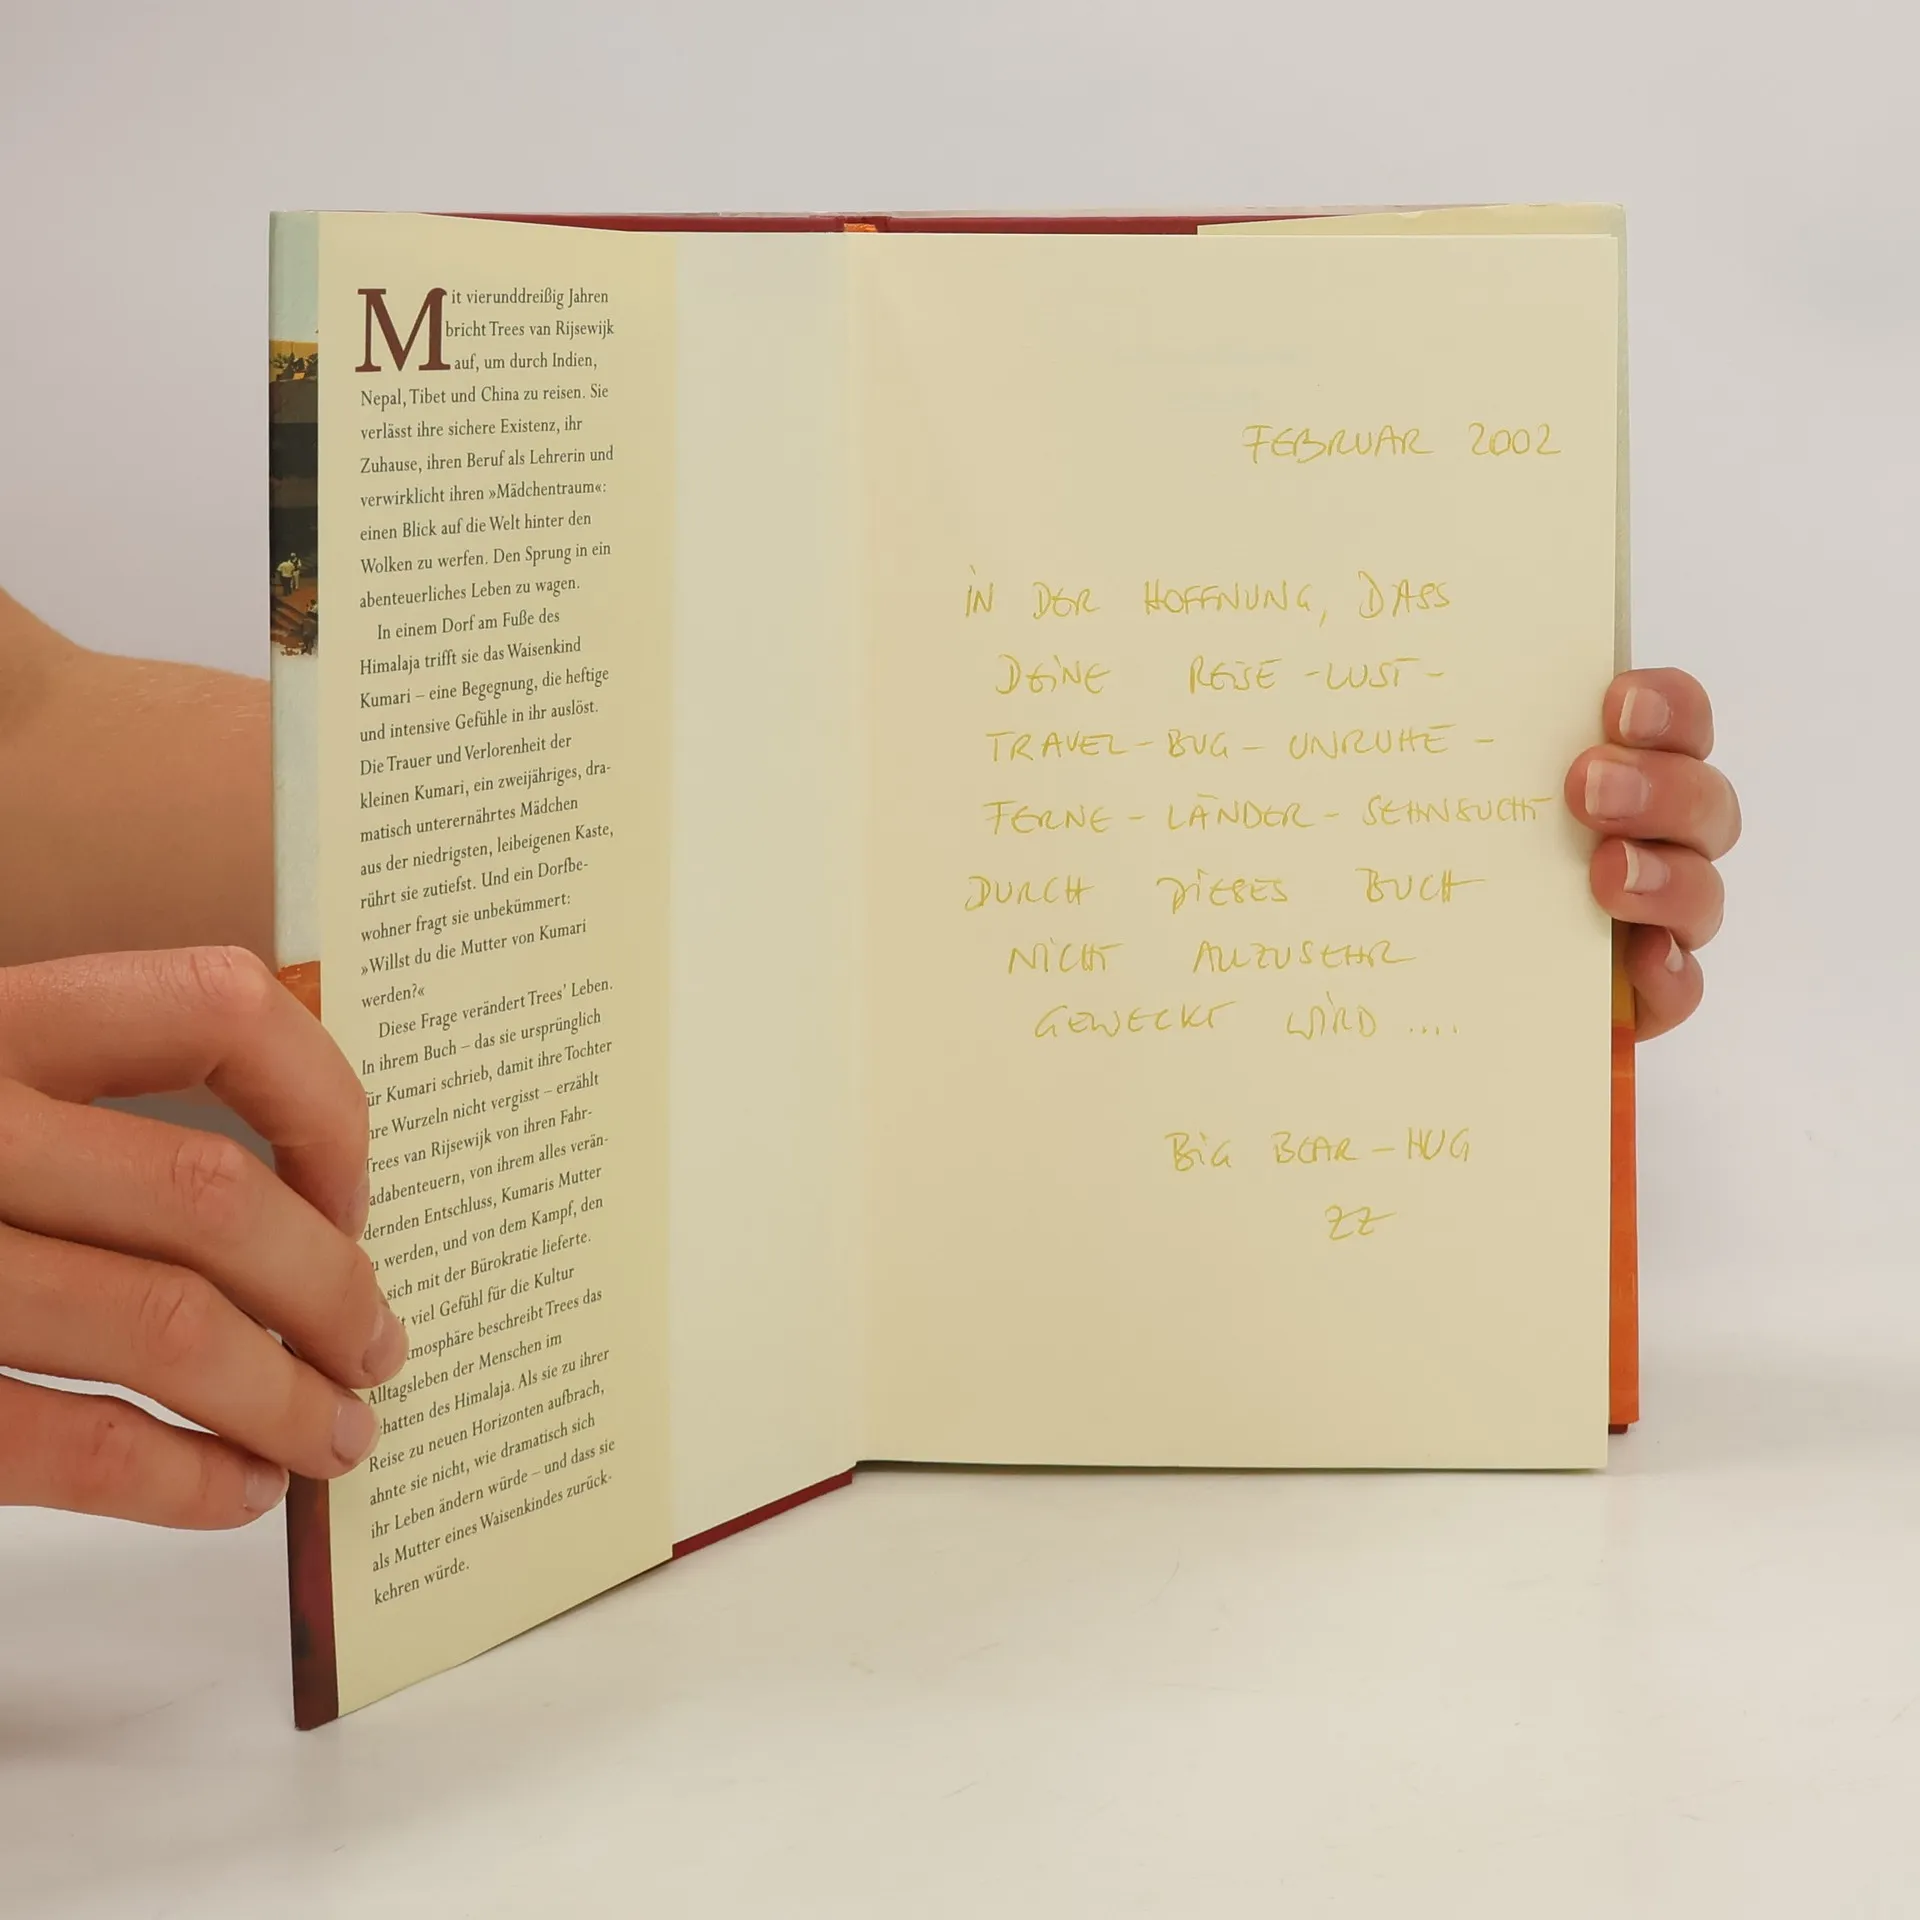 Mit vierunddreißig Jahren
bricht Trees van Rijsewijk
auf, um durch Indien,
Nepal, Tibet und China zu reisen. Sie
verlässt ihre sichere Existenz, ihr
Zuhause, ihren Beruf als Lehrerin und
verwirklicht ihren »Mädchentraum«:
einen Blick auf die Welt hinter den
Wolken zu werfen. Den Sprung in ein
abenteuerliches Leben zu wagen.
In einem Dorf am Fuße des
Himalaja trifft sie das Waisenkind
Kumari – eine Begegnung, die heftige
und intensive Gefühle in ihr auslöst.
Die Trauer und Verlorenheit der
kleinen Kumari, ein zweijähriges, dra-
matisch unterernährtes Mädchen
aus der niedrigsten, leibeigenen Kaste,
rührt sie zutiefst. Und ein Dorfbe-
wohner fragt sie unbekümmert:
»Willst du die Mutter von Kumari
werden?«
Diese Frage verändert Trees' Leben.
In ihrem Buch – das sie ursprünglich
ür Kumari schrieb, damit ihre Tochter
hre Wurzeln nicht vergisst – erzählt
Trees van Rijsewijk von ihren Fahr-
adabenteuern, von ihrem alles verän-
dernden Entschluss, Kumaris Mutter
u werden, und von dem Kampf, den
sich mit der Bürokratie lieferte.
t viel Gefühl für die Kultur
tmosphäre beschreibt Trees das
Alltagsleben der Menschen im
chatten des Himalaja. Als sie zu ihrer
Reise zu neuen Horizonten aufbrach,
ahnte sie nicht, wie dramatisch sich
ihr Leben ändern würde – und dass sie
als Mutter eines Waisenkindes zurück-
kehren würde.
FEBRUAR 2002
IN DER HOFFNUNG, DASS
DEINE REISE-LUST-
TRAVEL-BUG-UNRUHE-
FERNE-LÄNDER-SEHNSUCHT
DURCH DIESES BUCH
NICHT ALLZUSEHR
GEWECKT WIRD ....
BIG BEAR-HUG
ZZ